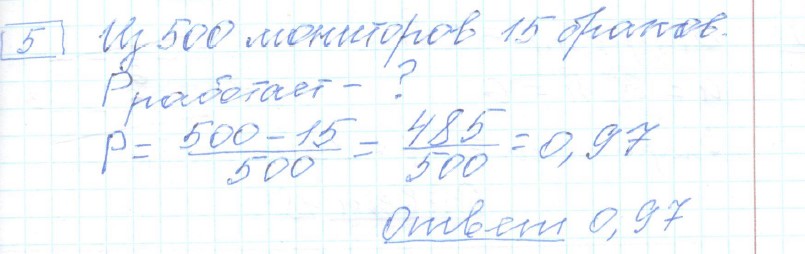 5 Из 500 мониторов 15 браков.
Pработает - ?
P = 500 - 15 / 500 = 485 / 500 = 0,97
Ответ 0,97